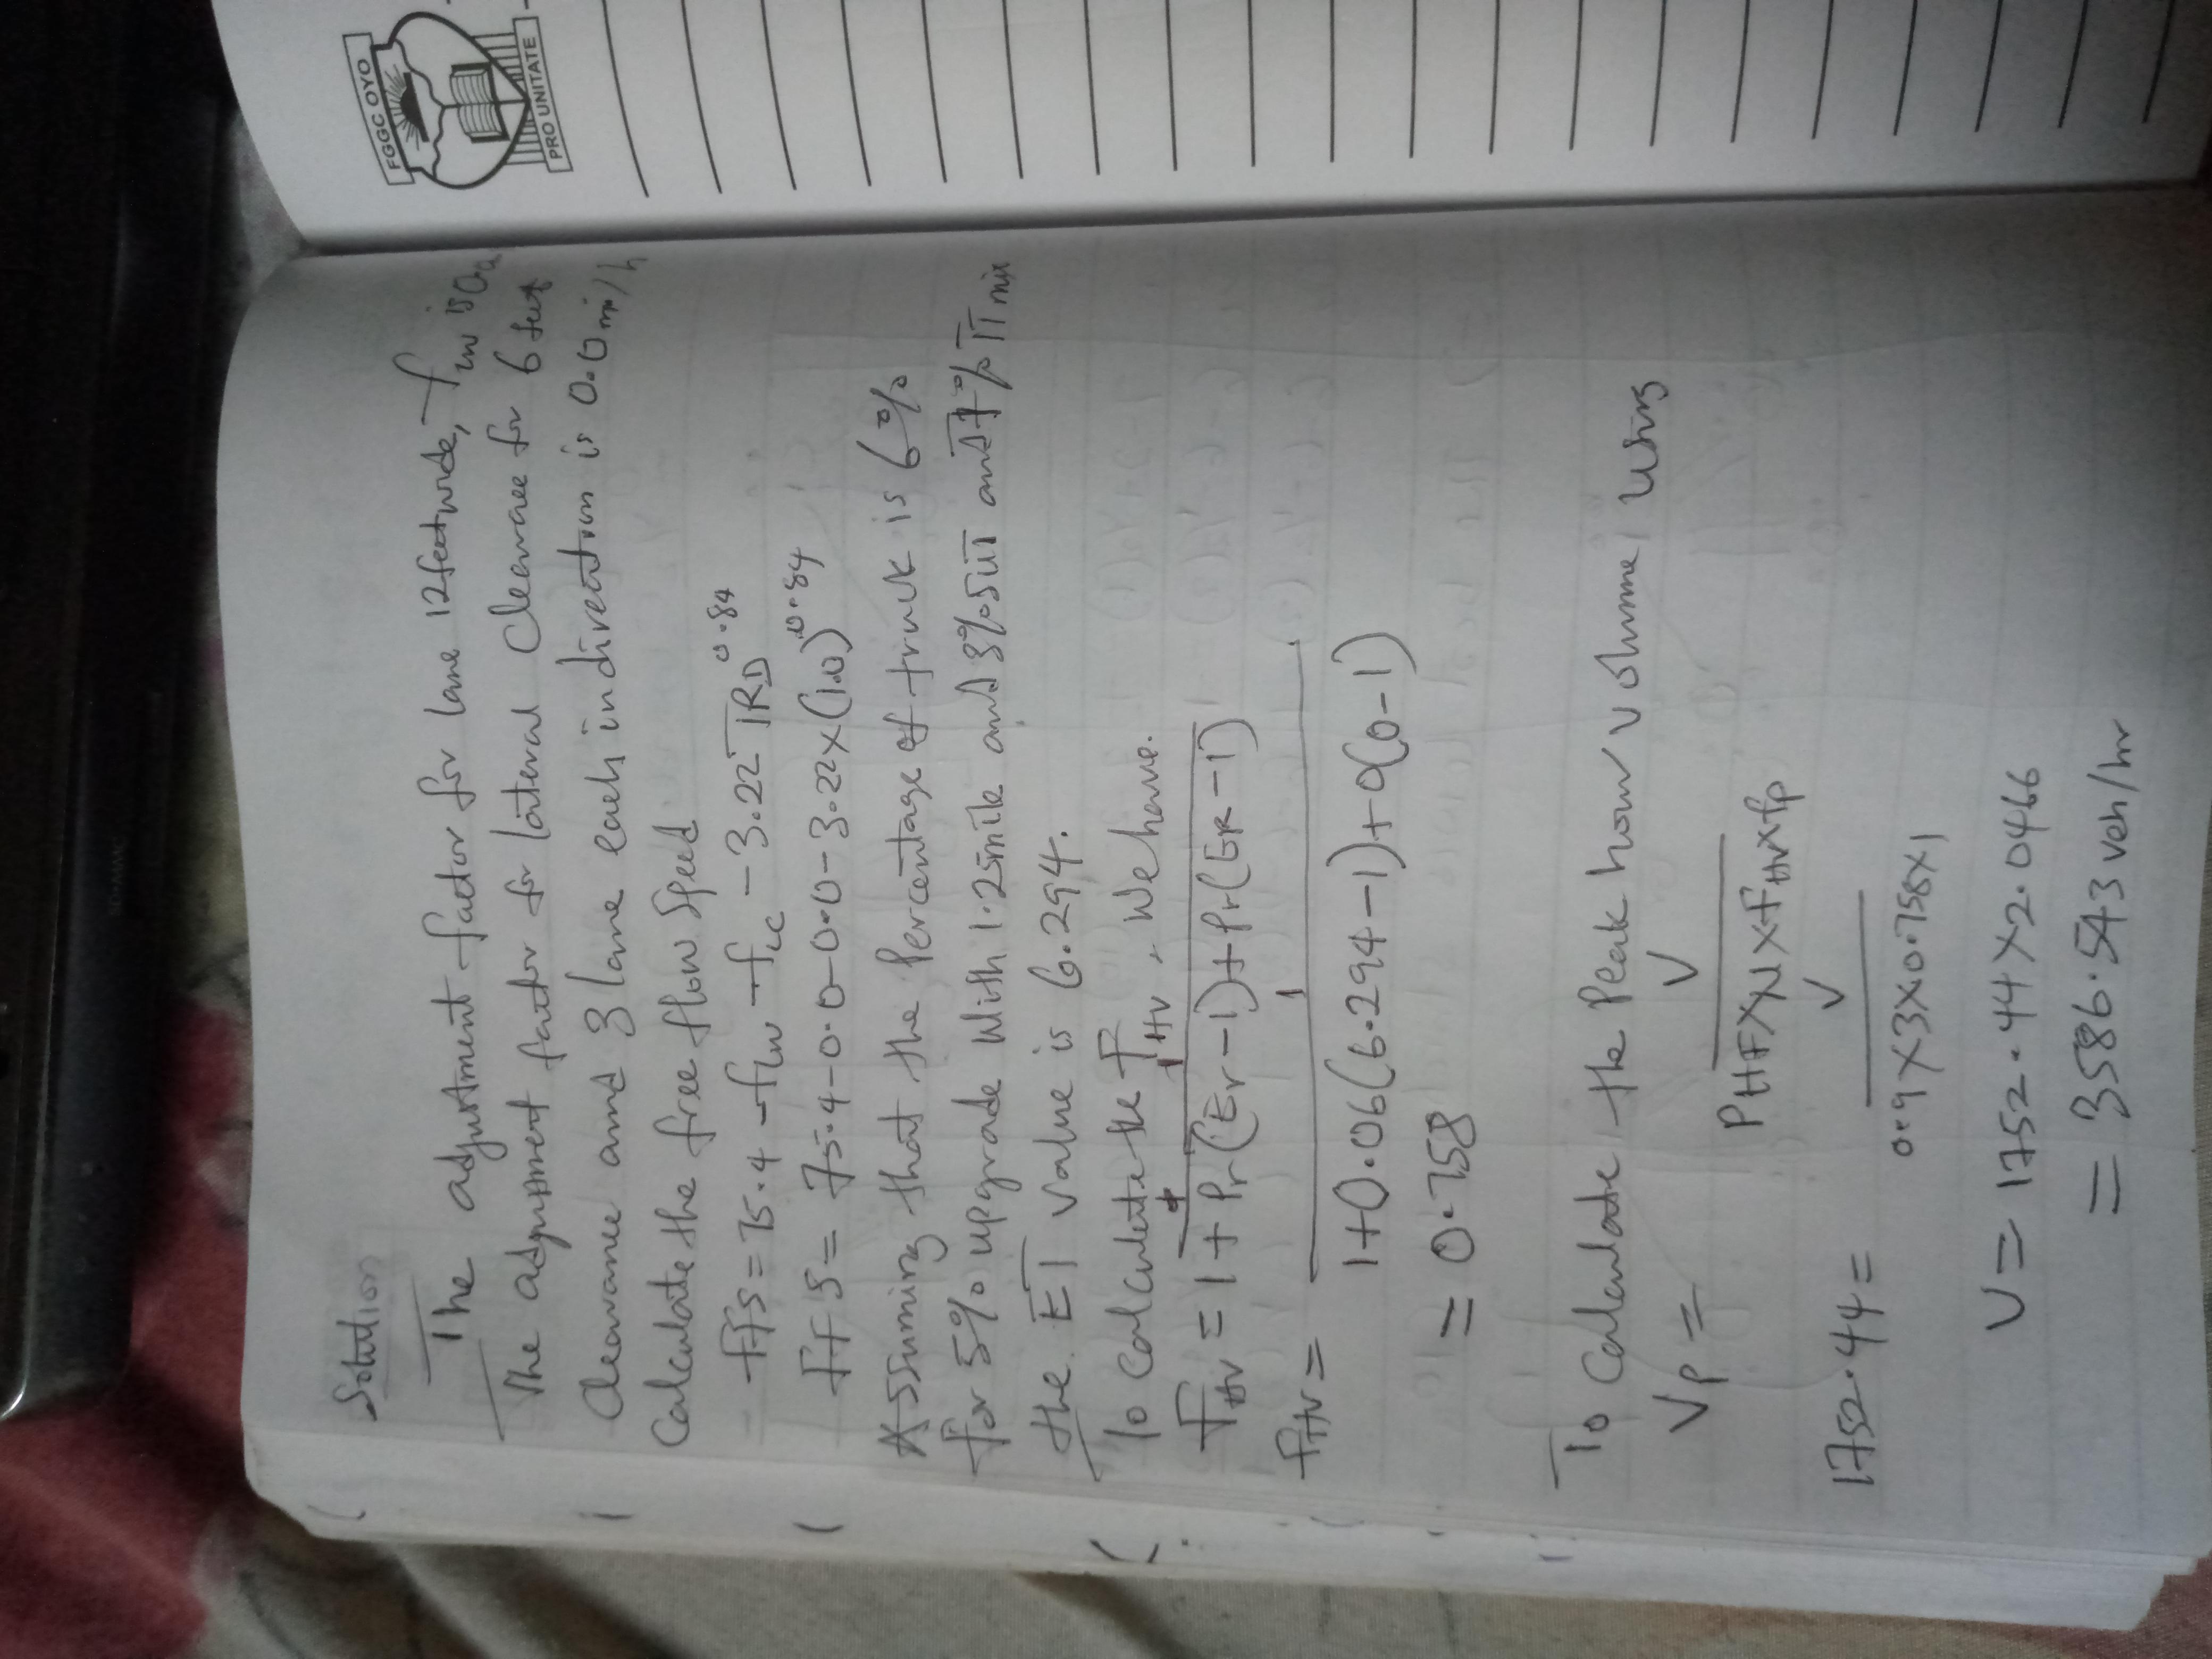 FGGC OYO
PRO UNITATE
Solution
The adjustment factor for lane 12feet wide, flw is 0.0
The adjustment factor for lateral clearance for 6 feet
Clearance and 3 lane each in direction is 0.0 mi/h
Calculate the free flow Speed
FFS = 75.4 - flw - flc - 3.22 TRD^0.84
FFS = 75.4 - 0.0 - 0.0 - 3.22 x (1.0)^0.84
Assuming that the Percentage of truck is 6%
for 5% upgrade with 1.25mile and 3% SUT and TT mix
the ET value is 6.294.
To calculate the FHV, We have.
FHV = 1
1 + Pr(Er - 1) + Pr(ER - 1)
FHV = 1
1 + 0.06(6.294 - 1) + 0(0 - 1)
= 0.758
To Calculate the Peak hour volume, using
VP = V
PHF X N X FHV X fp
1752.44 = V
0.9 X 3 X 0.758 X 1
V = 1752.44 X 2.0466
= 3586.543 veh/hr